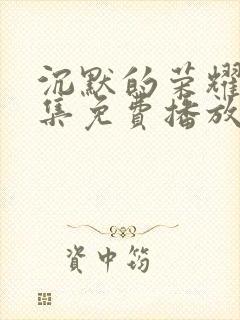 沉默的荣耀
集免費播放
資中筠